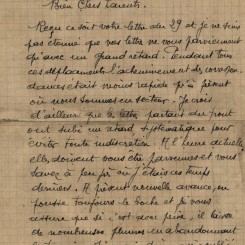 Bien Chers Parents,
Reçu ce soir votre lettre du 29 et je ne suis
pas étonné que vos lettres ne vous parviennent
qu'avec un grand retard. Pendant tous
ces déplacements l'acheminement et
était moins rapide qu'à présent
où nous sommes en secteur. Je crois
d'ailleurs que les lettres partant du front
ont subi un retard systématique pour
éviter toute indiscrétion. A l'heure actuelle
elles doivent vous être parvenues et vous
savez à peu près où j'étais ces temps
derniers. A présent nouvelle avance, on
pousse toujours le boche et je vous
assure que si c'est avec peine, il laisse
de nombreuses plumes en abandonnant